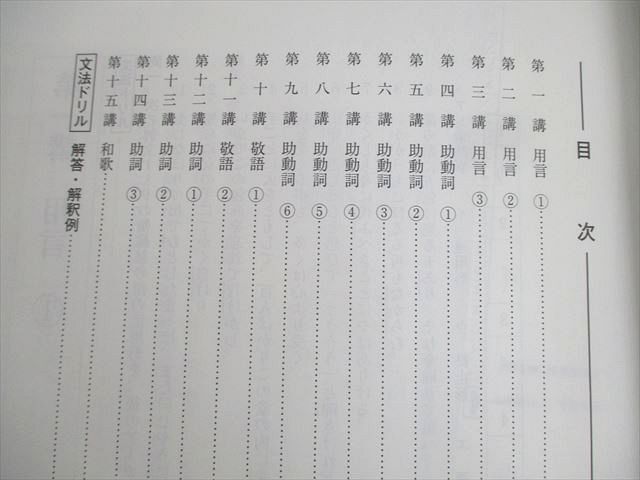 目次
第一講 用言①
第二講 用言②
第三講 用言③
第四講 助動詞①
第五講 助動詞②
第六講 助動詞③
第七講 助動詞④
第八講 助動詞⑤
第九講 助動詞⑥
第十講 敬語①
第十一講 敬語②
第十二講 助詞①
第十三講 助詞②
第十四講 助詞③
第十五講 和歌
文法ドリル 解答・解釈例